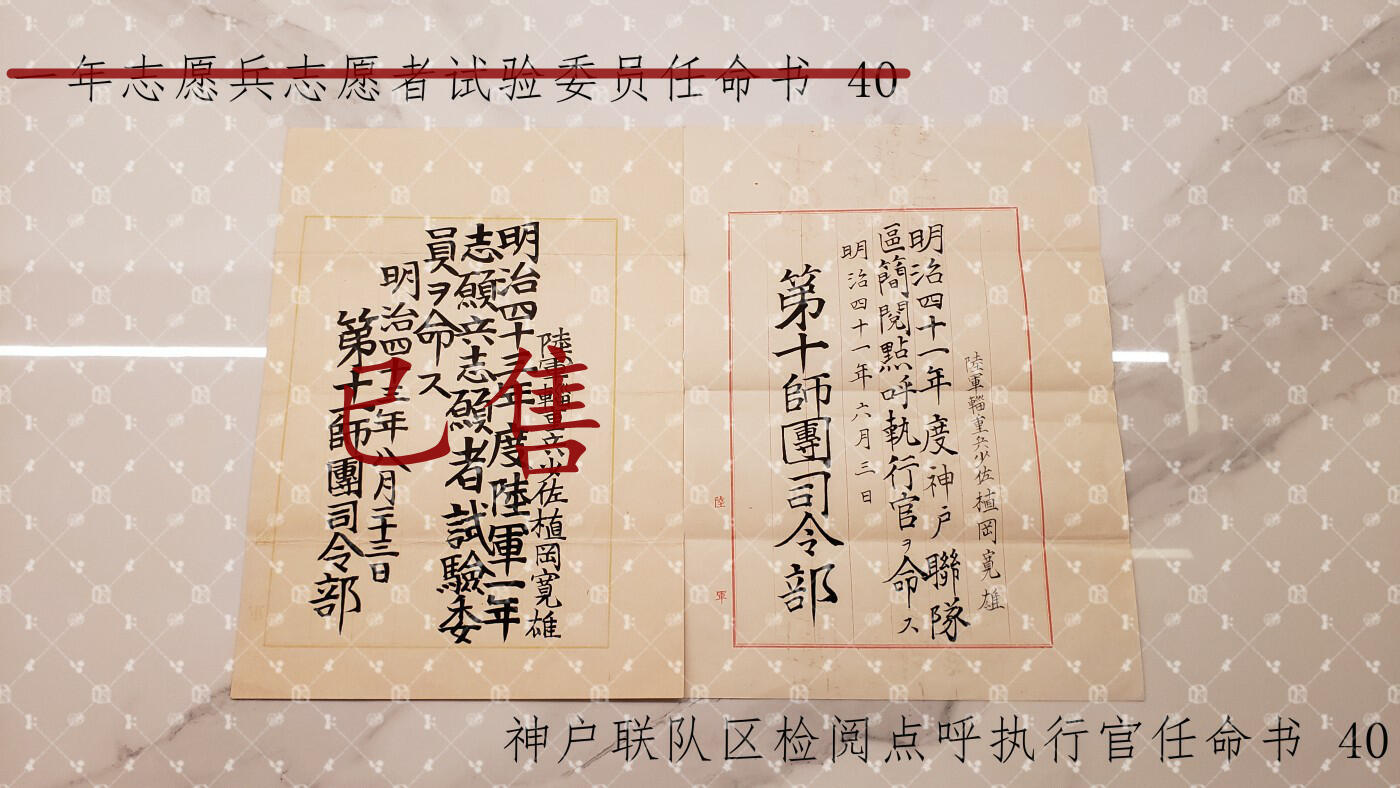 一年志愿兵志愿者试验委员任命书 40
陸軍輜重兵少佐植岡寛雄
明治四十一年度神戸聯隊
區簡閲點呼執行官ヲ命ス
明治四十一年六月三日
第十師團司令部
陸軍
陸軍輜重兵少佐植岡寛雄
明治四十三年度陸軍一年
志願兵志願者試驗委
員ヲ命ス
明治四十三年八月三十三日
第十師團司令部
已售
神户联队区检阅点呼执行官任命书 40